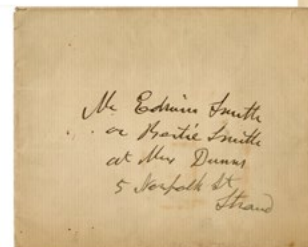 Mr Edwin Smith
or Bertie Smith
at Mrs Dunns
5 Norfolk St
Strand